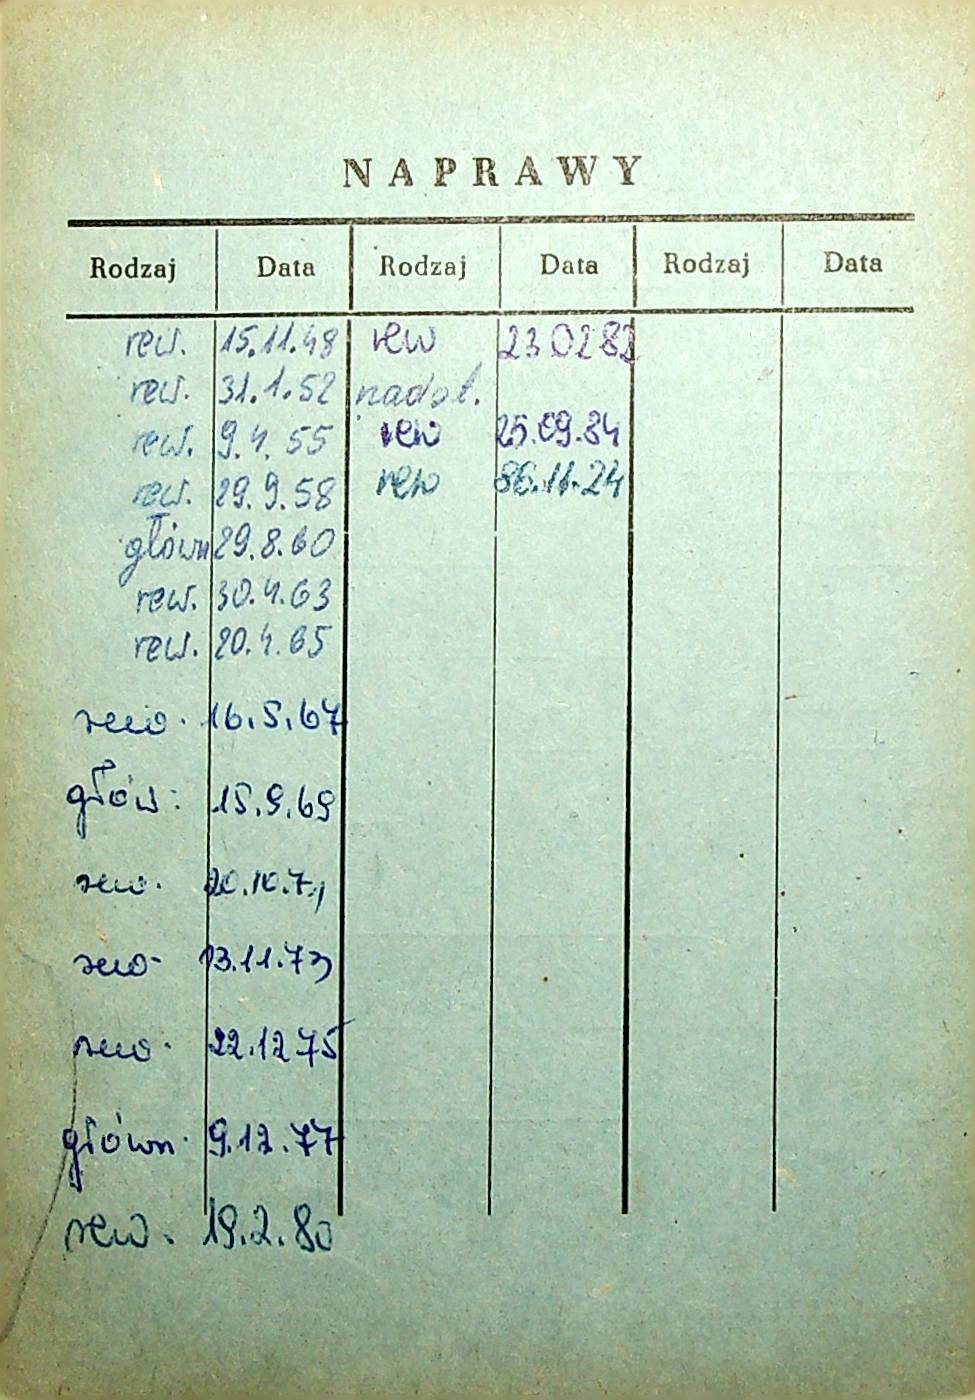 NAPRAWY
Rodzaj Data Rodzaj Data Rodzaj Data
rew. 15.11.48 rew 23 02 82
rew. 31.1.52 nadot.
rew. 9.4.55 rew 25.09.84
rew. 29.9.58 rew 86.11.24
główn 29.8.60
rew. 30.4.63
rew. 20.4.65
rew. 16.5.67
głów. 15.9.69
rew. 20.10.71
rew. 13.11.73
rew. 22.12 75
główn. 9.12.77
rew. 19.2.80